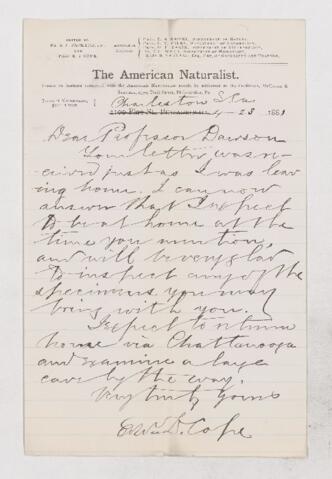 EDITED BY
The American Naturalist.
Charleston
2100 Pine St. Philadelphia, 4-23 1881
Dear Professor Dawson
Your letter was re-
ceived just as I was leav
ing home. I can now
answer that I expect
to be at home at the
time you mention,
and will be very glad
to inspect any of the
specimens you may
bring with you.
I expect to return
home via Chattanooga
and examine a large
cave by the way.
Very truly yours
Edw. D. Cope